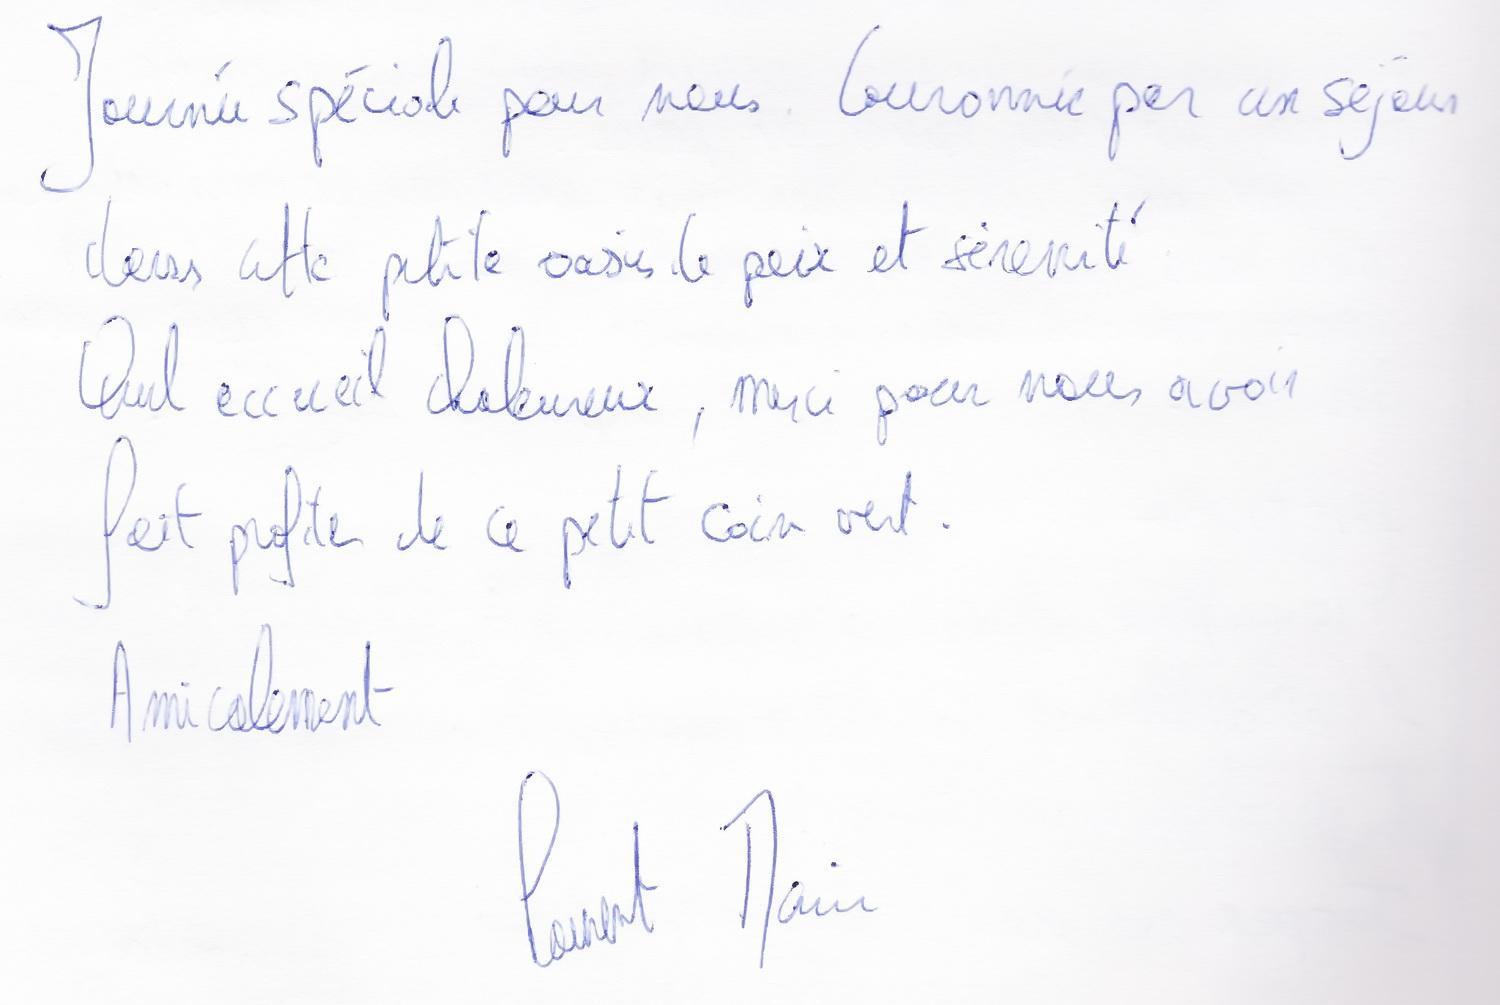 Journée spéciale pour nous. Couronnée par un séjour
dans cette petite oasis de paix et sérénité
Quel accueil chaleureux, merci pour nous avoir
fait profiter de ce petit coin vert.
Amicalement
Laurent